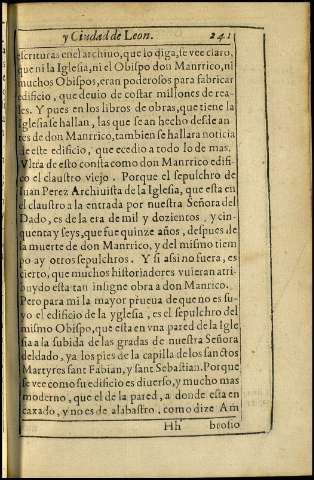 y Ciudad de Leon. 241
escrituras enel archiuo, que lo diga, se vee claro,
que ni la Iglesia, ni el Obispo don Manrrico, ni
muchos Obispos, eran poderosos para fabricar
edificio, que deuio de costar millones de rea-
les. Y pues en los libros de obras, que tiene la
Iglesia se hallan, las que se an hecho desde an
tes de don Manrrico, tambien se hallara noticia
de este edificio, que ecedio a todo lo de mas.
Vltra de esto consta como don Manrrico edifi-
co el claustro viejo. Porque el sepulchro de
Iuan Perez Archiuista de la Iglesia, que esta en
el claustro a la entrada por nuestra Señora del
Dado, es de la era de mil y dozientos, y cin-
quenta y seys, que fue quinze años, despues de
la muerte de don Manrrico, y del mismo tiem
po ay otros sepulchros. Y si assi no fuera, es
cierto, que muchos historiadores vuieran atri-
buydo esta tan insigne obra a don Manrico.
Pero para mi la mayor prueua de que no es su-
yo el edificio de la yglesia, es el sepulchro del
mismo Obispo, que esta en vna pared de la Igle
sia a la subida de las gradas de nuestra Señora
deldado, ya los pies de la capilla de los sanctos
Martyres sant Fabian, y sant Sebastian. Porque
se vee como su edificio es diuerso, y mucho mas
moderno, que el de la pared, a donde esta en
caxado, y no es de alabastro, como dize Am
Hh brosio